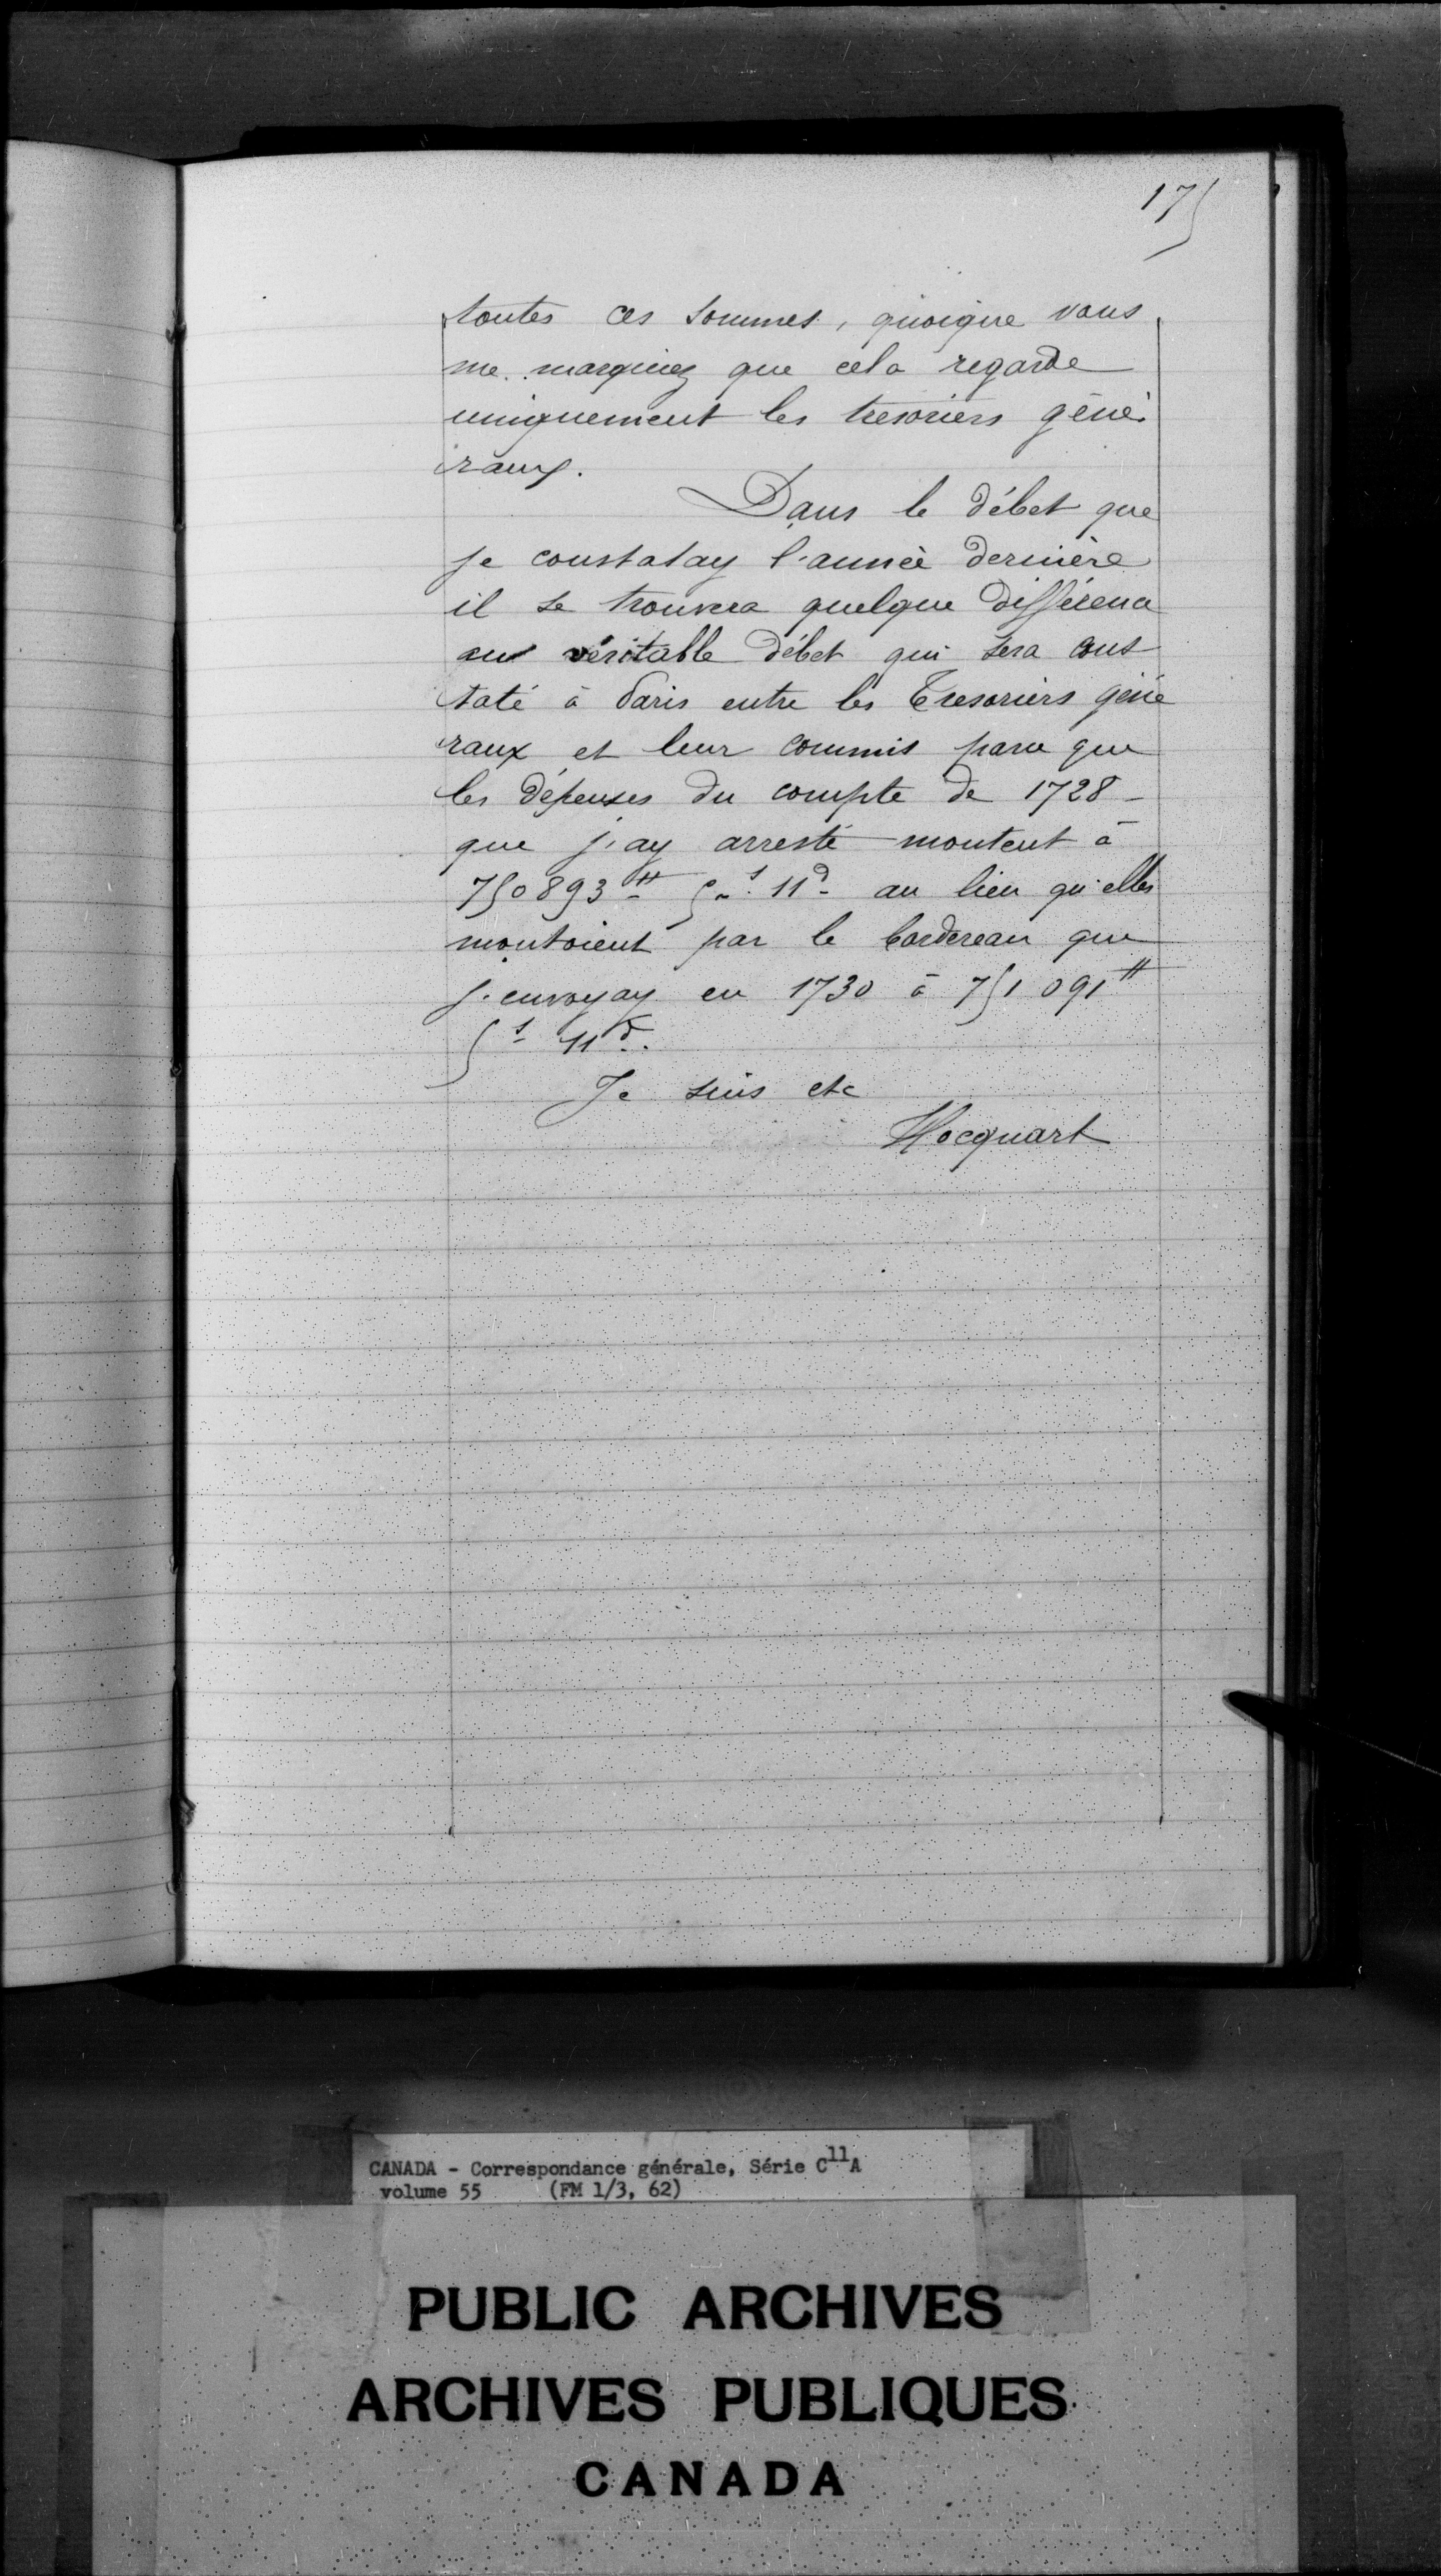 175
toutes ces sommes, quoique vous
me marquiez que cela regarde
uniquement les tresoriers géné
raux.
Dans le débet que
je constatay l'année dernière
il se trouvera quelque différence
au véritable débet qui sera cons
taté à Paris entre les Tresoriers géné
raux et leur commis parce que
les dépenses du compte de 1728
que j'ay arresté montent à
750893 ₶ 5 s. 11 d. au lieu qu'elles
montoient par le bordereau que
j'envoyay en 1730 à 751 091 ₶
5 s 11 d.
Je suis etc
Hocquart
CANADA - Correspondance générale, Série C11A
volume 55 (FM 1/3, 62)
PUBLIC ARCHIVES
ARCHIVES PUBLIQUES
CANADA